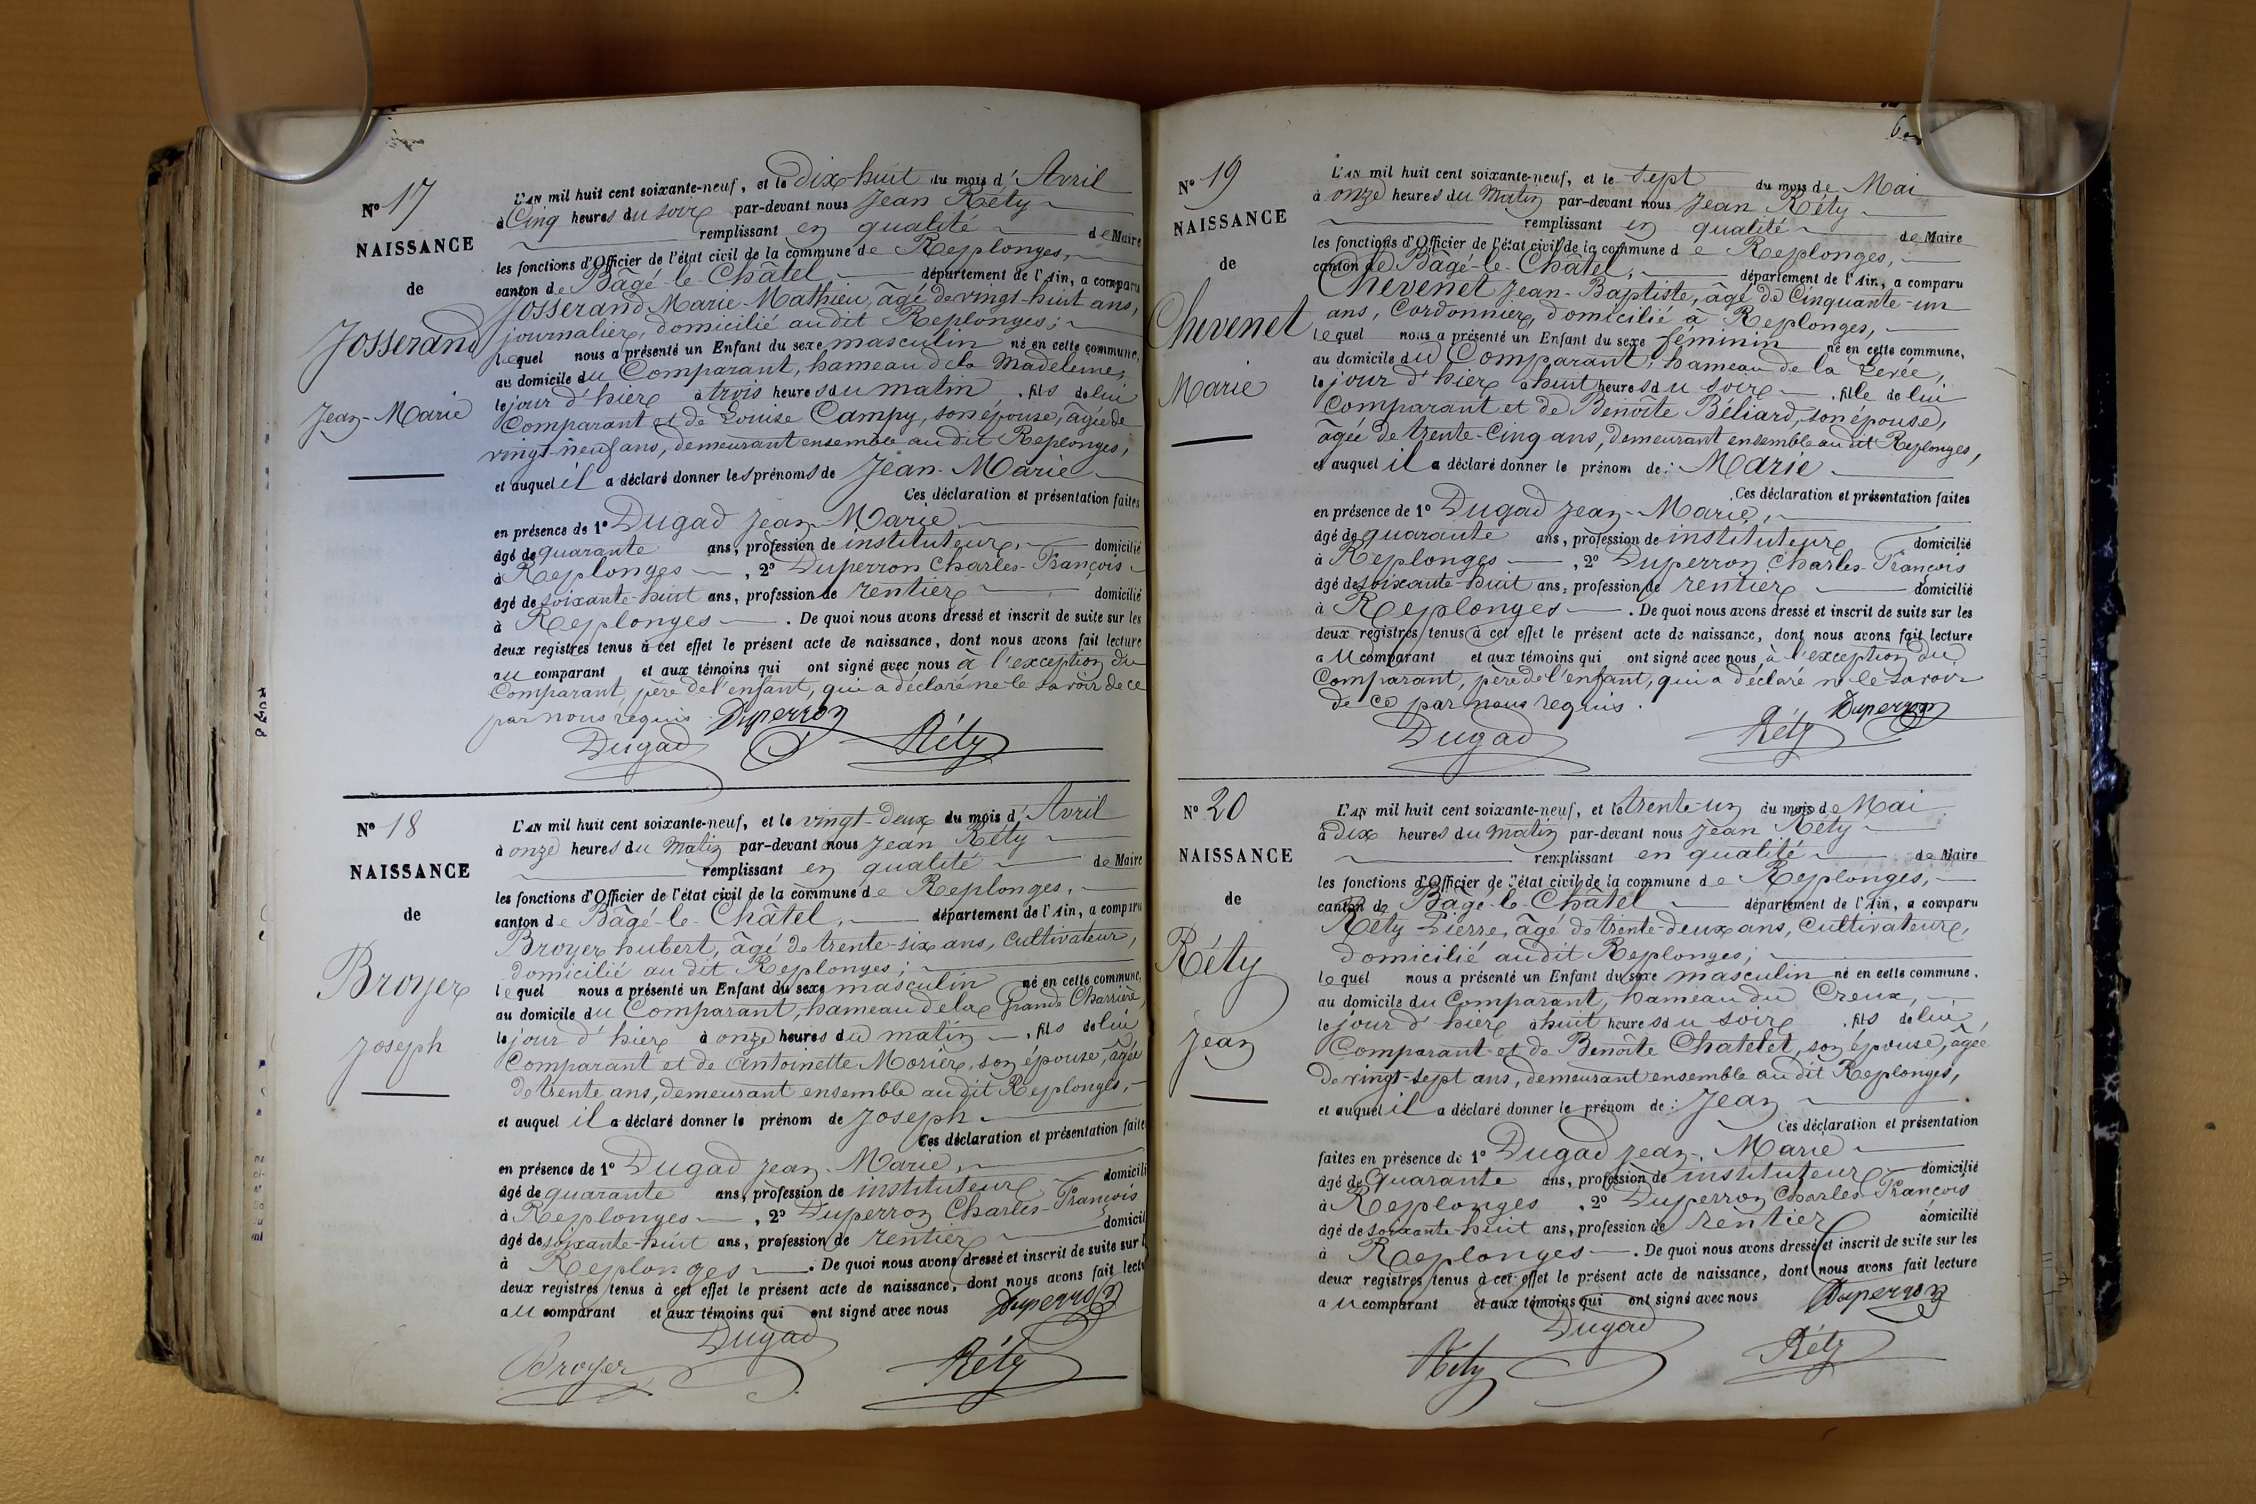 N° 17
NAISSANCE
de
Josserand
Jean-Marie
L'AN mil huit cent soixante-neuf, et le dix-huit du mois d'Avril
à Cinq heures du soir par-devant nous Jean Réty
remplissant en qualité de Maire
les fonctions d'Officier de l'état civil de la commune de Replonges,
canton de Bâgé-le-Châtel, département de l'Ain, a comparu
Josserand Marie-Mathieu, âgé de vingt-huit ans,
journalier, domicilié au dit Replonges;
lequel nous a présenté un Enfant du sexe masculin né en cette commune,
au domicile du Comparant, hameau de la Madeleine,
le jour d'hier à trois heures du matin, fils de lui
Comparant et de Louise Campy, son épouse, âgée de
vingt-neuf ans, demeurant ensemble au dit Replonges,
et auquel il a déclaré donner les prénoms de Jean-Marie
Ces déclaration et présentation faites
en présence de 1° Dugad Jean-Marie,
âgé de quarante ans, profession de instituteur, domicilié
à Replonges, 2° Duperron Charles-François
âgé de soixante-huit ans, profession de rentier domicilié
à Replonges. De quoi nous avons dressé et inscrit de suite sur les
deux registres tenus à cet effet le présent acte de naissance, dont nous avons fait lecture
au comparant et aux témoins qui ont signé avec nous à l'exception du
Comparant, père de l'enfant, qui a déclaré ne le savoir de ce
par nous requis. Duperron
Dugad Réty
N° 18
NAISSANCE
de
Broyer
Joseph
L'AN mil huit cent soixante-neuf, et le vingt-deux du mois d'Avril
à onze heures du Matin par-devant nous Jean Réty
remplissant en qualité de Maire
les fonctions d'Officier de l'état civil de la commune de Replonges,
canton de Bâgé-le-Châtel, département de l'Ain, a comparu
Broyer hubert, âgé de trente-six ans, Cultivateur,
domicilié au dit Replonges;
lequel nous a présenté un Enfant du sexe masculin né en cette commune,
au domicile du Comparant, hameau de la Grande Charrière,
le jour d'hier à onze heures du matin, fils de lui
Comparant et de Antoinette Morier, son épouse, âgée
de trente ans, demeurant ensemble au dit Replonges,
et auquel il a déclaré donner le prénom de Joseph
Ces déclaration et présentation faite
en présence de 1° Dugad Jean-Marie,
âgé de quarante ans, profession de instituteur domicili
à Replonges, 2° Duperron Charles-François
âgé de soixante-huit ans, profession de rentier domicil
à Replonges. De quoi nous avons dressé et inscrit de suite sur l
deux registres tenus à cet effet le présent acte de naissance, dont nous avons fait lectu
au comparant et aux témoins qui ont signé avec nous Duperron
Dugad
Broyer Réty
N° 19
NAISSANCE
de
Chevenet
Marie
L'AN mil huit cent soixante-neuf, et le sept du mois de Mai
à onze heures du Matin par-devant nous Jean Réty
remplissant en qualité de Maire
les fonctions d'Officier de l'état civil de la commune de Replonges,
canton de Bâgé-le-Châtel, département de l'Ain, a comparu
Chevenet Jean-Baptiste, âgé de Cinquante-un
ans, Cordonnier, domicilié à Replonges,
lequel nous a présenté un Enfant du sexe féminin né en cette commune,
au domicile du Comparant, hameau de la Levée,
le jour d'hier à huit heures du soir, fille de lui
Comparant et de Benoîte Béliard, son épouse,
âgée de trente-Cinq ans, demeurant ensemble au dit Replonges,
et auquel il a déclaré donner le prénom de: Marie
Ces déclaration et présentation faites
en présence de 1° Dugad Jean-Marie,
âgé de quarante ans, profession de instituteur domicilié
à Replonges, 2° Duperron Charles-François
âgé de soixante-huit ans, profession de rentier domicilié
à Replonges. De quoi nous avons dressé et inscrit de suite sur les
deux registres tenus à cet effet le présent acte de naissance, dont nous avons fait lecture
au comparant et aux témoins qui ont signé avec nous, à l'exception du
Comparant, père de l'enfant, qui a déclaré ne le savoir
de ce par nous requis. Duperron
Dugad Réty
N° 20
NAISSANCE
de
Réty
Jean
L'AN mil huit cent soixante-neuf, et le trente-un du mois de Mai
à dix heures du Matin par-devant nous Jean Réty
remplissant en qualité de Maire
les fonctions d'Officier de l'état civil de la commune de Replonges,
canton de Bâgé-le-Châtel département de l'Ain, a comparu
Réty Pierre, âgé de trente-deux ans, Cultivateur,
domicilié au dit Replonges;
lequel nous a présenté un Enfant du sexe masculin né en cette commune,
au domicile du Comparant, hameau du Creux,
le jour d'hier à huit heures du soir, fils de lui
Comparant et de Benoîte Chatelet, son épouse, âgée
de vingt-sept ans, demeurant ensemble au dit Replonges,
et auquel il a déclaré donner le prénom de: Jean
Ces déclaration et présentation
faites en présence de 1° Dugad Jean-Marie
âgé de Quarante ans, profession de instituteur domicilié
à Replonges, 2° Duperron Charles-François
âgé de soixante-huit ans, profession de rentier domicilié
à Replonges. De quoi nous avons dressé et inscrit de suite sur les
deux registres tenus à cet effet le présent acte de naissance, dont nous avons fait lecture
au comparant et aux témoins qui ont signé avec nous Duperron
Dugad
Réty Réty